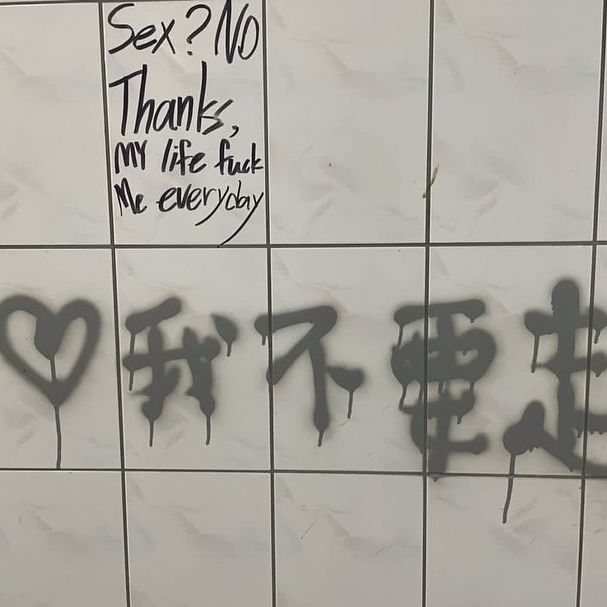 Sex? No
Thanks,
My life fuck
Me everyday
♡我不要走